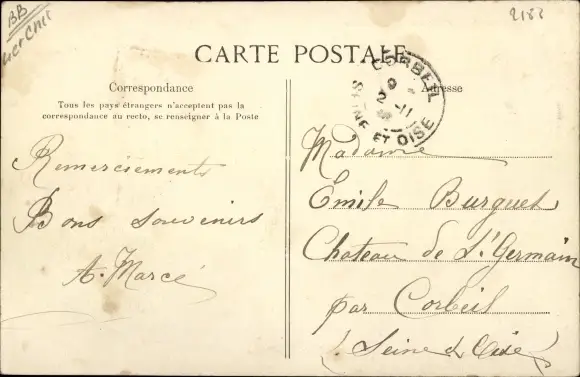 BB
2188
CARTE POSTALE
Correspondance
Tous les pays étrangers n'acceptent pas la
correspondance au recto, se renseigner à la Poste
Remerciements
Bons souvenirs
A. Marcé
Adresse
CORBEIL
SEINE ET OISE
Madame
Emile Burguet
Chateau de St Germain
par Corbeil
Seine et Oise